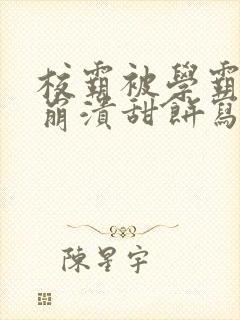 校霸被學霸
崩潰甜餅寫
陳星宇